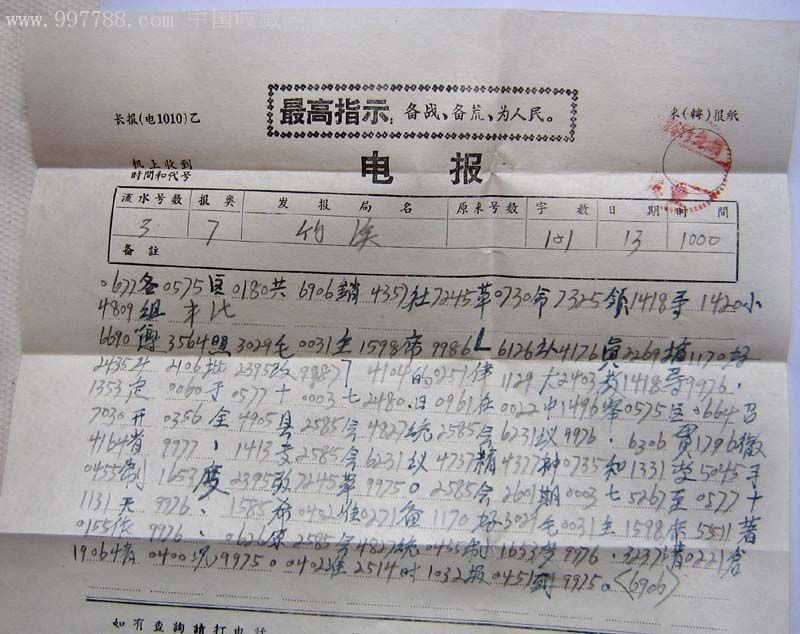 www.997788.com 中国收藏热线
最高指示: 备战、备荒、为人民。
长报(电1010)乙
来(转)报纸
电报
机上收到
时间和代号
流水号数 报类 发报局名 原来号数 字数 日期 时间
3 7 竹溪 101 13 1000
备註
0677各 0575区 0180共 6906销 4357社 7245革 0730命 7325领 1418导 1420小
4809组
3564照 3029毛 0031主 1598席 9986 6126 4176真 2269 1170好
2435斗 2106批 2395改 9987 4104的 0251伟 1129大 2403 1418导 9976.
1353定 0060于 0577十 0003七 2480日 0961在 0022中 1496峯 0575区 0664召
7030开 0356全 4905县 2585会 4827统 2585会 6231议 9976. 6306贯 1796彻
4164省 9977、 1413专 2585会 6231议 4737精 4377神 0735和 1331 5045
0455制 1653度 2395改 7245革 9975。 2585会 2601期 0003七 5267至 0577十
1131天 9976. 1585希 0402准 0271备 1170好 3029毛 0031主 1598席 5511著
9976. 2585会 4827统 0455制 1653度 9976. 3237 0221
0400况 9975。 0402准 2514时 1032报 0451到 9975。(6906)
如有查询请打电话